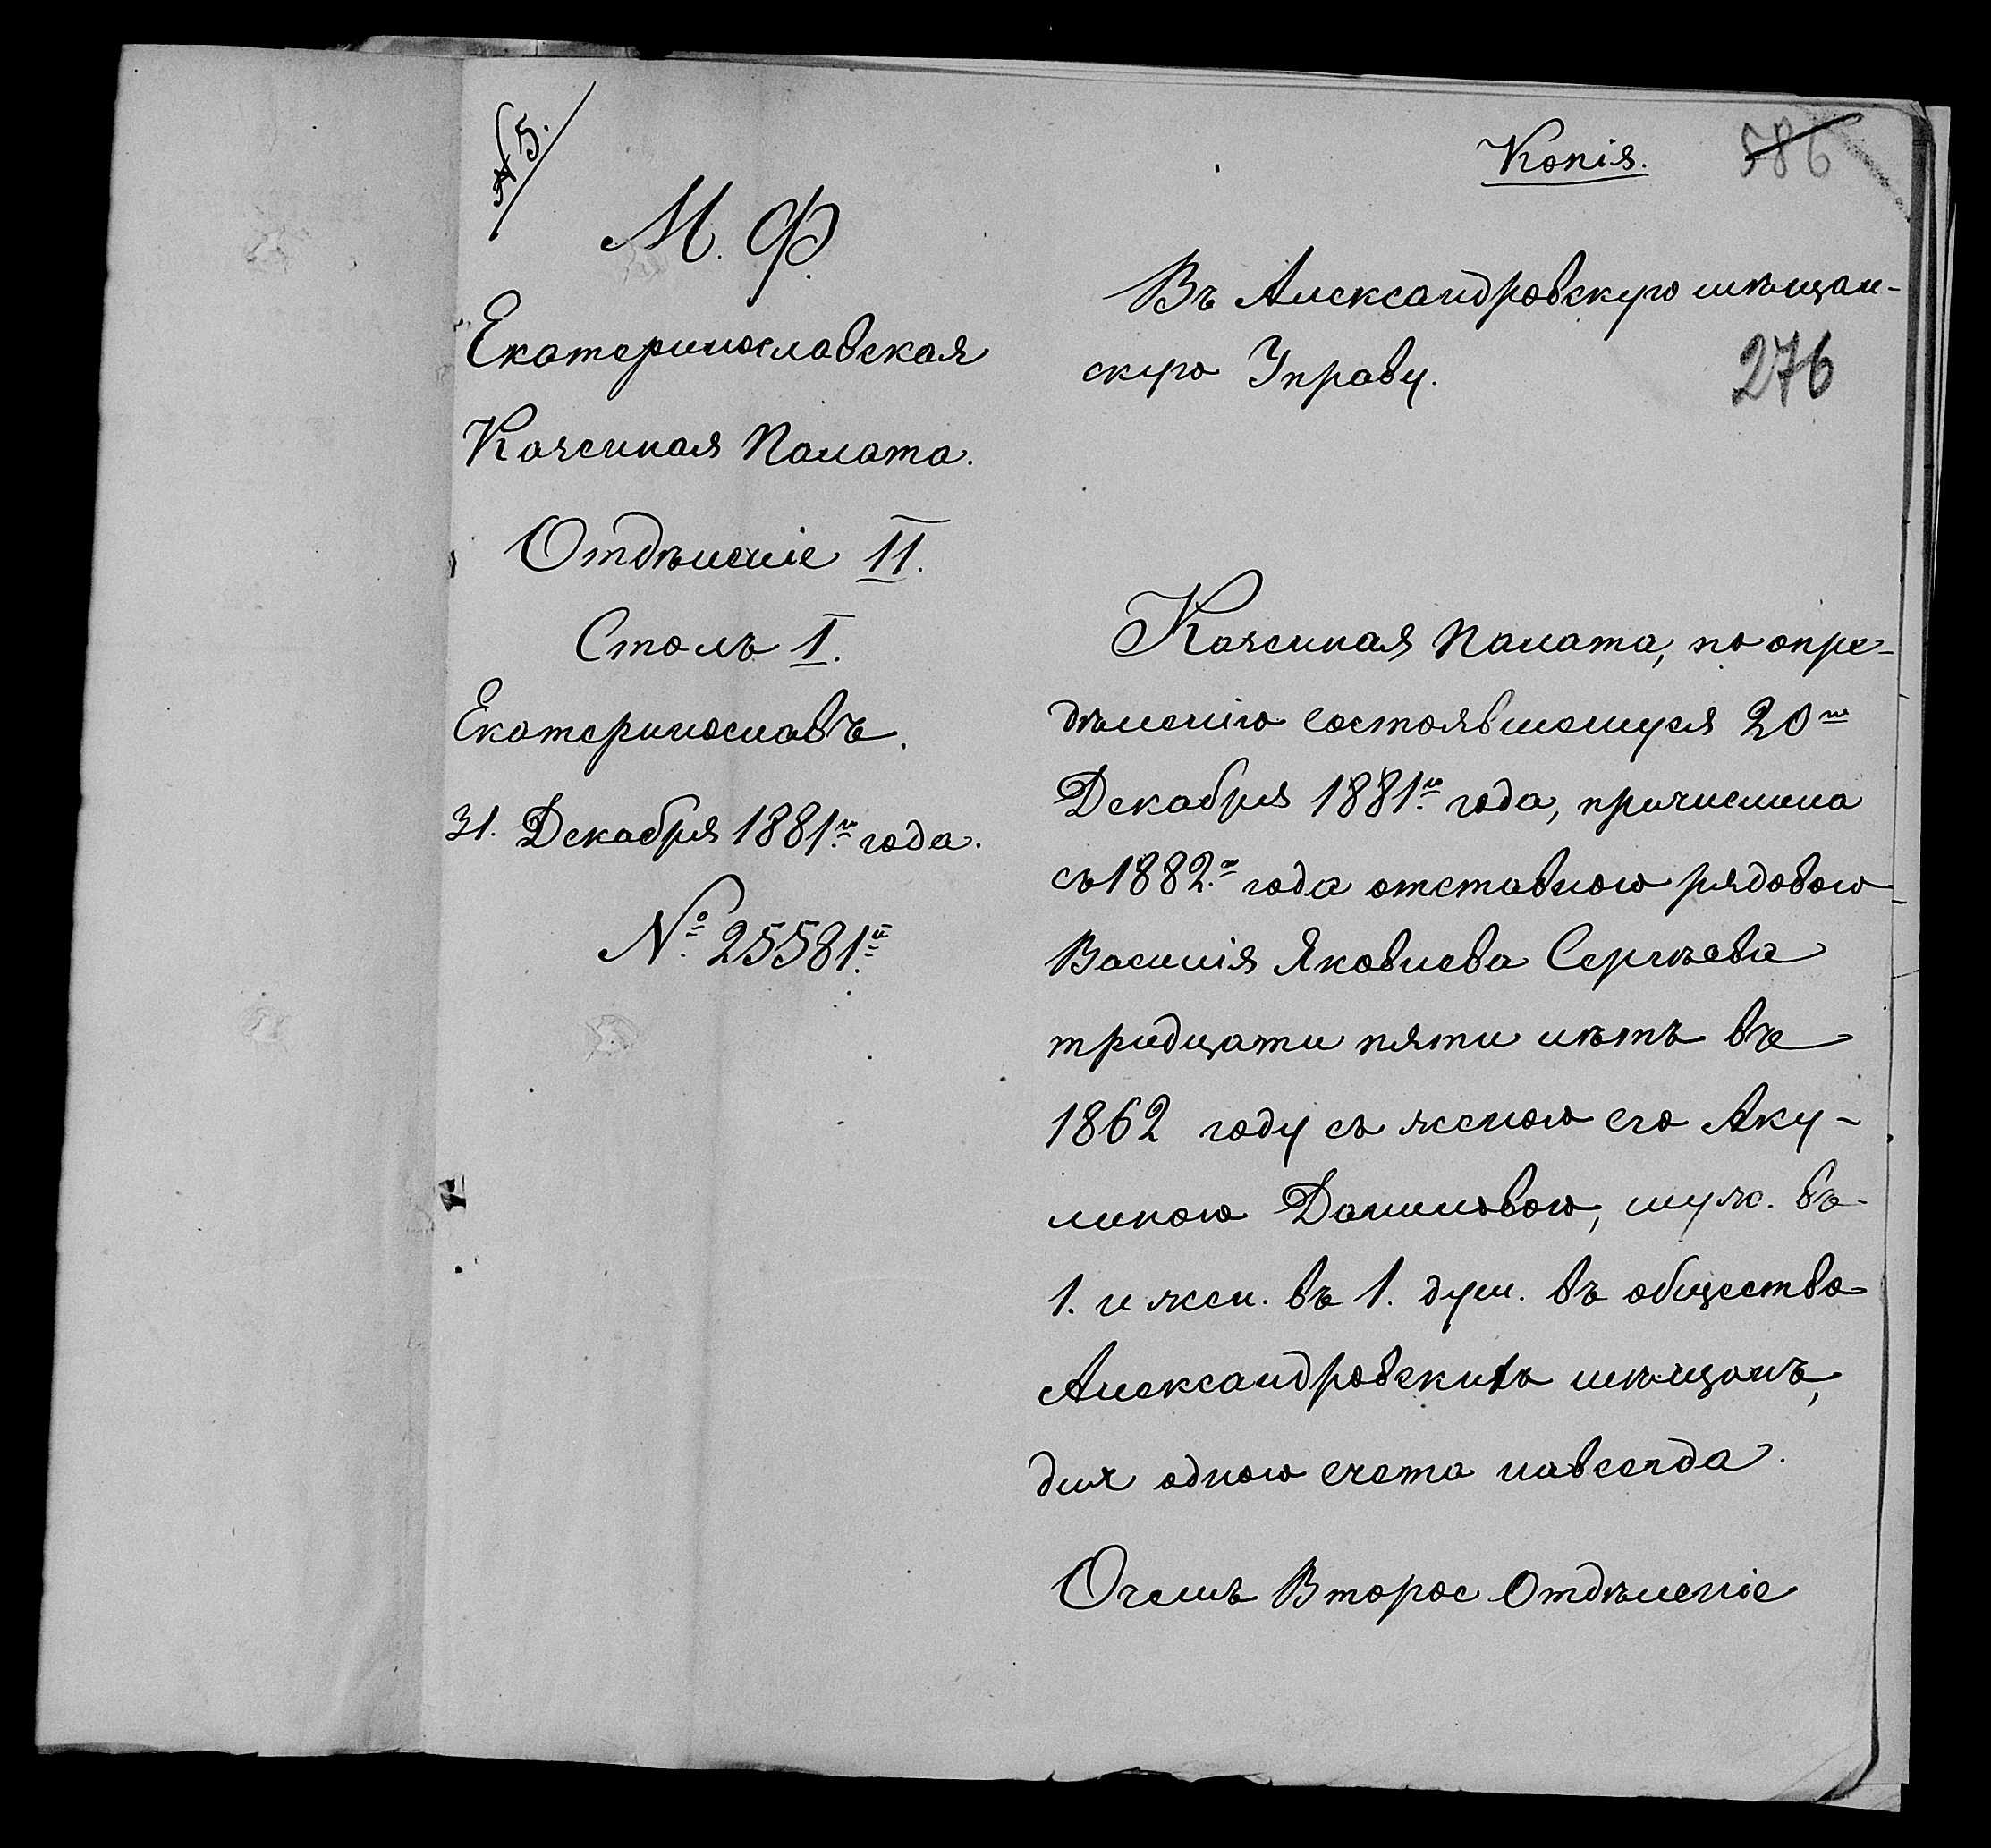 № 5.
М. Ф.
Екатеринославская
Казенная Палата.
Отдѣленіе II.
Столъ I.
Екатеринославъ.
31. Декабря 1881го года.
№ 25581й
Копія.
586
Въ Александровскую мѣщан-
скую Управу.
276
Казенная Палата, по опре-
дѣленію состоявшемуся 20го
Декабря 1881го года, причислила
съ 1882го года отставного рядового
Василія Яковлева Сергѣева
тридцати пяти лѣтъ въ
1862 году съ женою его Аку-
линою Даниловою, муж. въ
1. и жен. въ 1. душ. въ общество
Александровскихъ мѣщанъ,
для одного счета навсегда.
О чемъ Второе Отдѣленіе